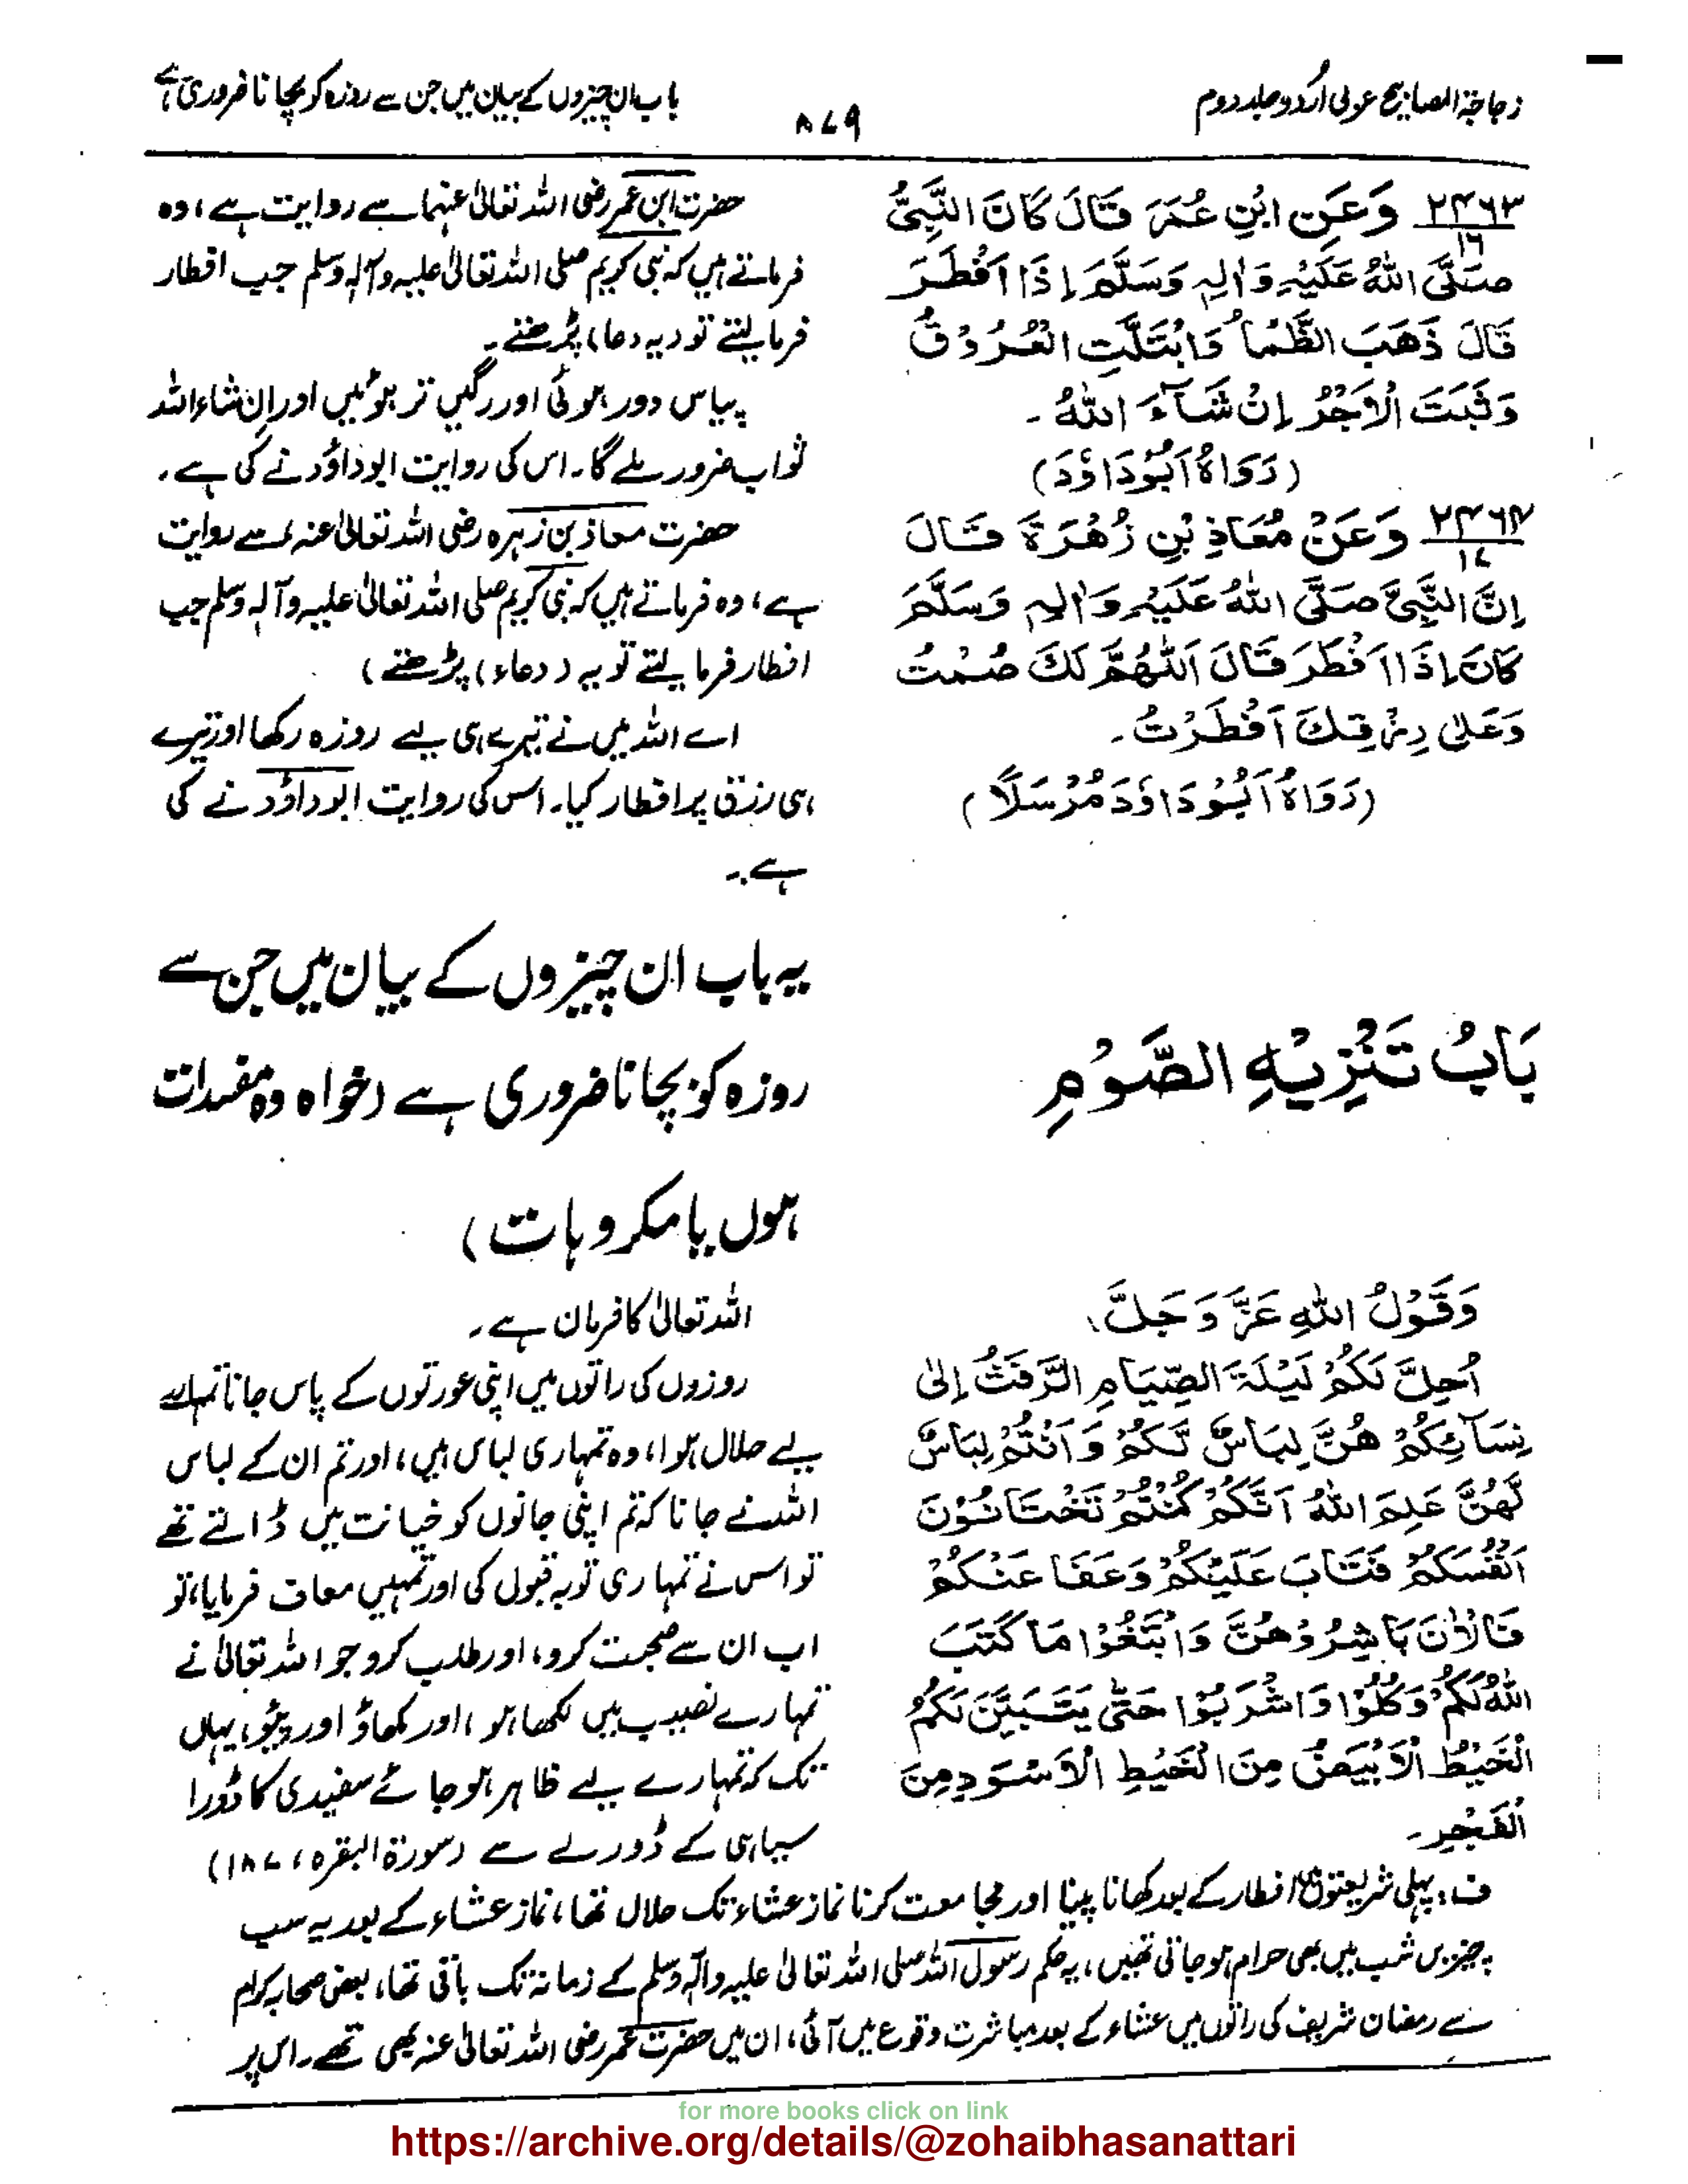 زجاجۃ المصابیح عربی اُردو جلد دوم
۸۷۹
باب ان چیزوں کے بیان میں جن سے روزہ کو بچانا ضروری ہے
۲۴۶۳ وَعَنِ ابْنِ عُمَرَ قَالَ كَانَ النَّبِيُّ
۱۶
صَلَّى اللّٰهُ عَلَيْهِ وَاٰلِهٖ وَسَلَّمَ إِذَا اَفْطَرَ
قَالَ ذَهَبَ الظَّمَأُ وَابْتَلَّتِ الْعُرُوْقُ
وَثَبَتَ الْاَجْرُ اِنْ شَآءَ اللّٰهُ۔
(رَوَاهُ اَبُوْدَاوٗدَ)
۲۴۶۴ وَعَنْ مُعَاذِ بْنِ زُهْرَةَ قَالَ
۱۷
اِنَّ النَّبِيَّ صَلَّى اللّٰهُ عَلَيْهِ وَاٰلِهٖ وَسَلَّمَ
كَانَ اِذَا اَفْطَرَ قَالَ اَللّٰهُمَّ لَكَ صُمْتُ
وَعَلٰى رِزْقِكَ اَفْطَرْتُ۔
(رَوَاهُ اَبُوْدَاوٗدَ مُرْسَلًا)
حضرت ابن عمر رضی اللہ تعالیٰ عنہما سے روایت ہے، وہ
فرماتے ہیں کہ نبی کریم صلی اللہ تعالیٰ علیہ وآلہ وسلم جب افطار
فرمالیتے تو (یہ دعا) پڑھتے۔
پیاس دور ہوئی اور رگیں تر ہوئیں اور ان شاء اللہ
ثواب ضرور ملے گا۔ اس کی روایت ابوداؤد نے کی ہے۔
حضرت معاذ بن زہرہ رضی اللہ تعالیٰ عنہ سے روایت
ہے، وہ فرماتے ہیں کہ نبی کریم صلی اللہ تعالیٰ علیہ وآلہ وسلم جب
افطار فرما لیتے تو یہ (دعاء) پڑھتے)
اے اللہ میں نے تیرے ہی لیے روزہ رکھا اور تیرے
ہی رزق پر افطار کیا۔ اس کی روایت ابوداؤد نے کی
ہے۔
بَابُ تَنْزِيْهِ الصَّوْمِ
یہ باب ان چیزوں کے بیان میں جن سے
روزہ کو بچانا ضروری ہے (خواہ وہ مفسدات
ہوں یا مکروہات)
وَقَوْلُ اللّٰهِ عَزَّ وَجَلَّ،
اُحِلَّ لَكُمْ لَيْلَةَ الصِّيَامِ الرَّفَثُ اِلٰى
نِسَآئِكُمْ هُنَّ لِبَاسٌ لَّكُمْ وَاَنْتُمْ لِبَاسٌ
لَّهُنَّ عَلِمَ اللّٰهُ اَنَّكُمْ كُنْتُمْ تَخْتَانُوْنَ
اَنْفُسَكُمْ فَتَابَ عَلَيْكُمْ وَعَفَا عَنْكُمْ
فَالْاٰنَ بَاشِرُوْهُنَّ وَابْتَغُوْا مَا كَتَبَ
اللّٰهُ لَكُمْ وَكُلُوْا وَاشْرَبُوْا حَتّٰى يَتَبَيَّنَ لَكُمُ
الْخَيْطُ الْاَبْيَضُ مِنَ الْخَيْطِ الْاَسْوَدِ مِنَ
الْفَجْرِ۔
اللہ تعالیٰ کا فرمان ہے۔
روزوں کی راتوں میں اپنی عورتوں کے پاس جانا تمہارے
لیے حلال ہوا، وہ تمہاری لباس ہیں، اور تم ان کے لباس
اللہ نے جانا کہ تم اپنی جانوں کو خیانت میں ڈالتے تھے
تو اس نے تمہاری توبہ قبول کی اور تمہیں معاف فرمایا، تو
اب ان سے صحبت کرو، اور طلب کرو جو اللہ تعالیٰ نے
تمہارے نصیب میں لکھا ہو، اور کھاؤ اور پیئو، یہاں
تک کہ تمہارے لیے ظاہر ہو جائے سفیدی کا ڈورا
سیاہی کے ڈورے سے (سورۃ البقرہ، ۱۸۷)
ف: پہلی شریعتوں میں افطار کے بعد کھانا پینا اور مجامعت کرنا نماز عشاء تک حلال تھا، نماز عشاء کے بعد یہ سب
چیزیں شب میں بھی حرام ہو جاتی تھیں، یہ حکم رسول اللہ صلی اللہ تعالیٰ علیہ وآلہ وسلم کے زمانہ تک باقی تھا، بعض صحابہ کرام
سے رمضان شریف کی راتوں میں عشاء کے بعد مباشرت وقوع میں آئی، ان میں حضرت عمر رضی اللہ تعالیٰ عنہ بھی تھے۔ اس پر
for more books click on link
https://archive.org/details/@zohaibhasanattari